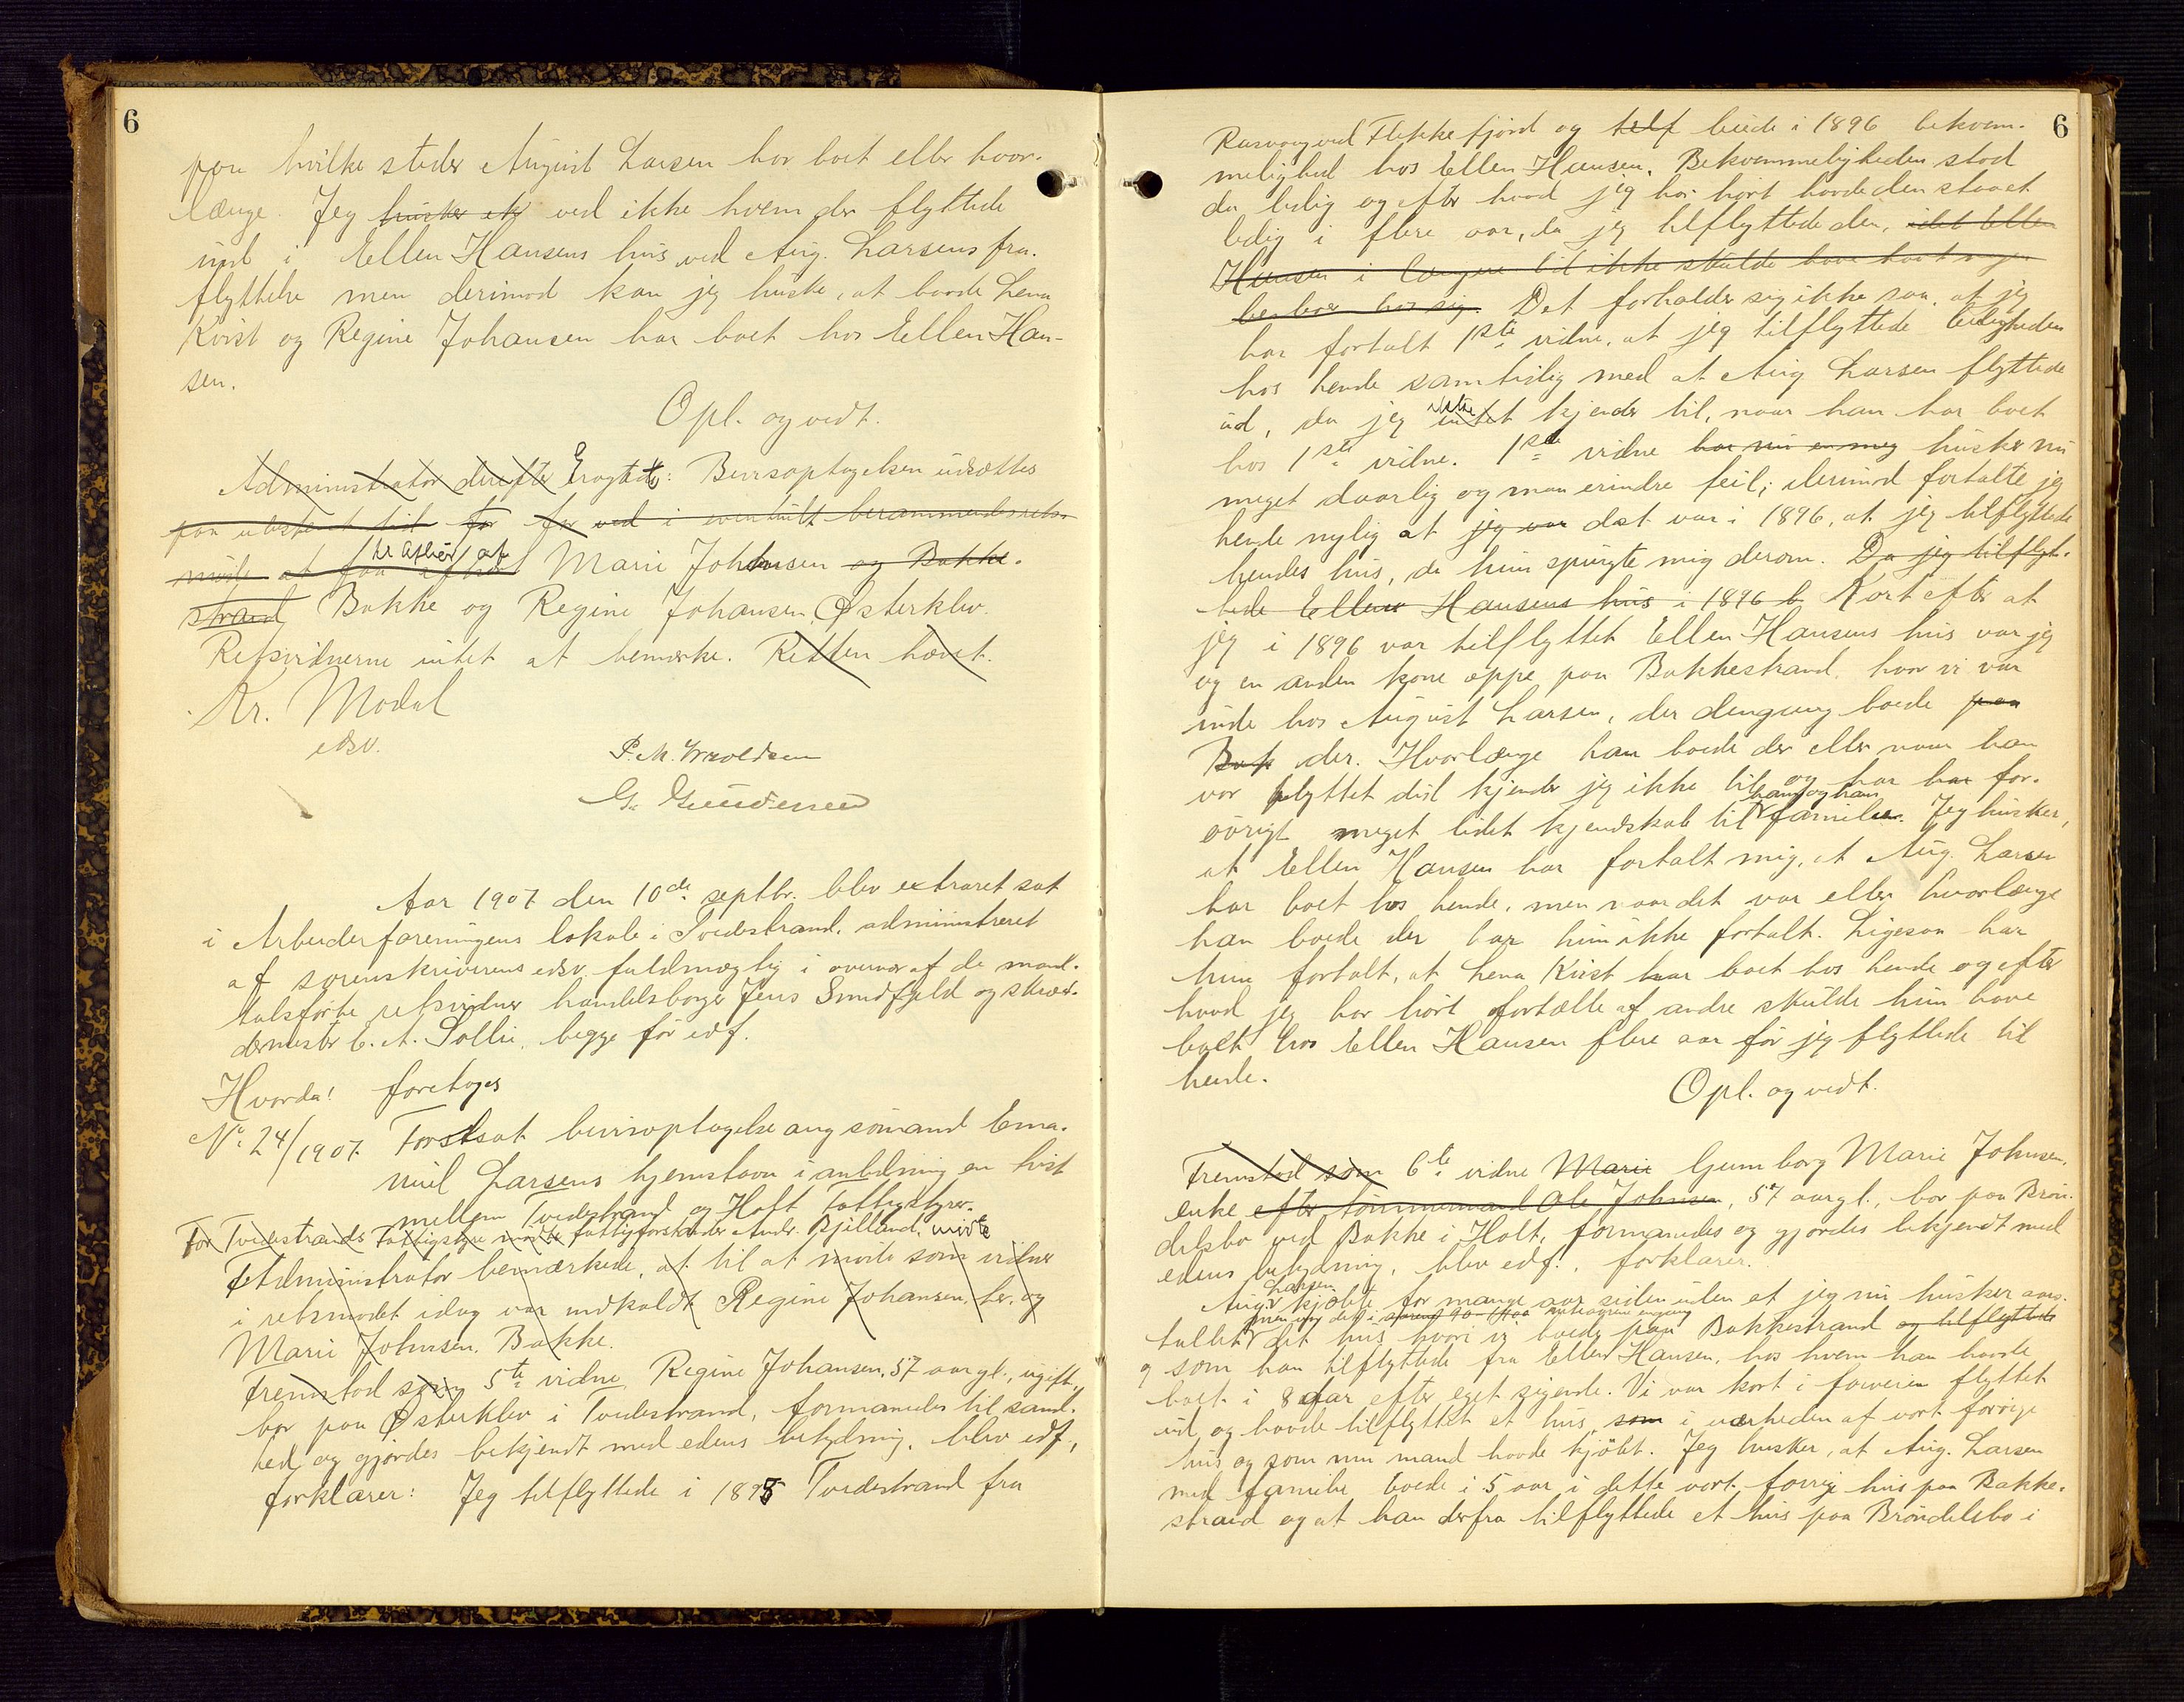 6
paa hvilke steder August Larsen har boet eller hvor-
længe. Jeg husker ej ved ikke hvem der flyttede
ind i Ellen Hansens hus ved Aug. Larsens fra-
flyttelse men derimod kan jeg huske, at baade Lena
Kvist og Regine Johansen har boet hos Ellen Han-
sen.
Opl. og vedt.
Administrator derefter Eragtede: Bevisoptagelsen udsættes
paa ubestemt tid for før ved i eventuelt berammendes rets-
møde at faa afhørt Marie Johnsen og Bakke-
strand Bakke og Regine Johansen, Østerklev.
Retsvidnerne intet at bemærke. Retten hævet.
Kr. Modal
edsv.
P. M.
G. Gundersen
Aar 1907 den 10de septbr. blev extraret sat
i Arbeiderforeningens lokale i Tvedestrand, administreret
af sorenskriverens edsv. fuldmægtig i overvær af de mand-
talsførte retsvidner handelsborger Jens Smidfjeld og skræd-
dermester C. A. Sollie, begge før edf.
Hvorda! foretoges
No. 24/1907. Fortsat bevisoptagelse ang sømand Ema-
nuel Larsens hjemstavn i anledning en tvist
mellem Tvedestrand og Holt Fattigstyrer.
For Tvedestrands Fattigstyre mødte fattigforstander Andr. Bjelland. mødte
Administrator bemærkede, at til at møde som vidner
i retsmødet idag var indkaldt Regine Johansen, her, og
Marie Johnsen, Bakke.
Fremstod som 5te vidne Regine Johansen, 57 aar gl., ugift,
bor paa Østerklev i Tvedestrand, formanedes til sand-
hed og gjordes bekjendt med edens betydning, blev edf.,
forklarer: Jeg tilflyttede i 1895 Tvedestrand fra
6
Rasvaag ved Flekkefjord og leiede i 1896 bekvem-
melighed hos Ellen Hansen. Bekvemmeligheden stod
da ledig og efter hvad jeg har hørt havde den staaet
ledig i flere aar, da jeg tilflyttede den, idet Ellen
Hansen i længere tid ikke skulde have havt nogen
beboer hos sig. Det forholder sig ikke saa, at jeg
har fortalt 1ste vidne, at jeg tilflyttede leiligheden
hos hende samtidig med at Aug Larsen flyttede
ud, da jeg intet ikke kjender til, naar han har boet
hos 1ste vidne. 1ste vidne har nu en meg husker nu
meget daarlig og maa erindre feil; derimod fortalte jeg
hende nylig at jeg var det var i 1896, at jeg tilflyttede
hendes hus, da hun spurgte mig derom. Da jeg tilflyt-
tede Ellen Hansens hus i 1896 b Kort efter at
jeg i 1896 var tilflyttet Ellen Hansens hus var jeg
og en anden kone oppe paa Bakkestrand, hvor vi var
inde hos August Larsen, der dengang boede paa
Bak der. Hvorlænge han boede der eller naar han
var flyttet did kjender jeg ikke til og har har for-
øvrigt meget lidet kjendskab til ham og hans familie. Jeg husker,
at Ellen Hansen har fortalt mig, at Aug. Larsen
har boet hos hende, men naar det var eller hvorlænge
han boede der har hun ikke fortalt. Ligesaa har
hun fortalt, at Lena Kvist har boet hos hende og efter
hvad jeg har hørt fortælle af andre skulde hun have
boet hos Ellen Hansen flere aar før jeg flyttede til
hende.
Opl. og vedt.
Fremstod som 6te vidne Marie Gunborg Marie Johnsen,
enke efter tømmermand Ole Johnsen, 57 aar gl., bor paa Brøn-
delsbo ved Bakke i Holt, formanedes og gjordes bekjendt med
edens betydning, blev edf., forklarer.
Aug. Larsen kjøbte for mange aar siden uden at jeg nu husker aars-
tallet det hus hvori vi boede paa Bakkestrand og tilflyttede
og som han tilflyttede fra Ellen Hansen, hos hvem han havde
boet i 8 aar efter eget sigende. Vi var kort i forveien flyttet
ud og havde tilflyttet et hus, som i nærheden af vort forrige
hus og som min mand havde kjøbt. Jeg husker, at Aug. Larsen
med familie boede i 5 aar i dette vort forrige hus paa Bakke-
strand og at han derfra tilflyttede et hus paa Brøndelsbo i